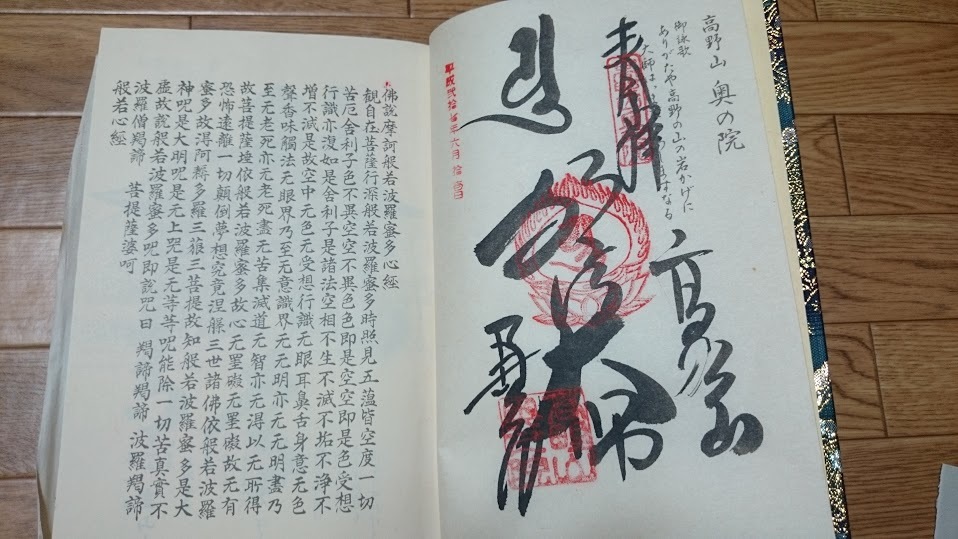 高野山 奥の院
御詠歌
ありがたや高野の山の岩かげに
大師は
なる
奉拝
高野山
弘法大師
佛説摩訶般若波羅蜜多心經
觀自在菩薩行深般若波羅蜜多時照見五蘊皆空度一切
苦厄舍利子色不異空空不異色色即是空空即是色受想
行識亦復如是舍利子是諸法空相不生不滅不垢不淨不
增不減是故空中无色无受想行識无眼耳鼻舌身意无色
聲香味觸法无眼界乃至无意識界无无明亦无无明盡乃
至无老死亦无老死盡无苦集滅道无智亦无得以无所得
故菩提薩埵依般若波羅蜜多故心无罣礙无罣礙故无有
恐怖遠離一切顛倒夢想究竟涅槃三世諸佛依般若波羅
蜜多故得阿耨多羅三藐三菩提故知般若波羅蜜多是大
神呪是大明呪是无上呪是无等等呪能除一切苦真實不
虚故說般若波羅蜜多呪即說呪曰 羯諦羯諦 波羅羯諦
波羅僧羯諦 菩提薩婆呵
般若心經